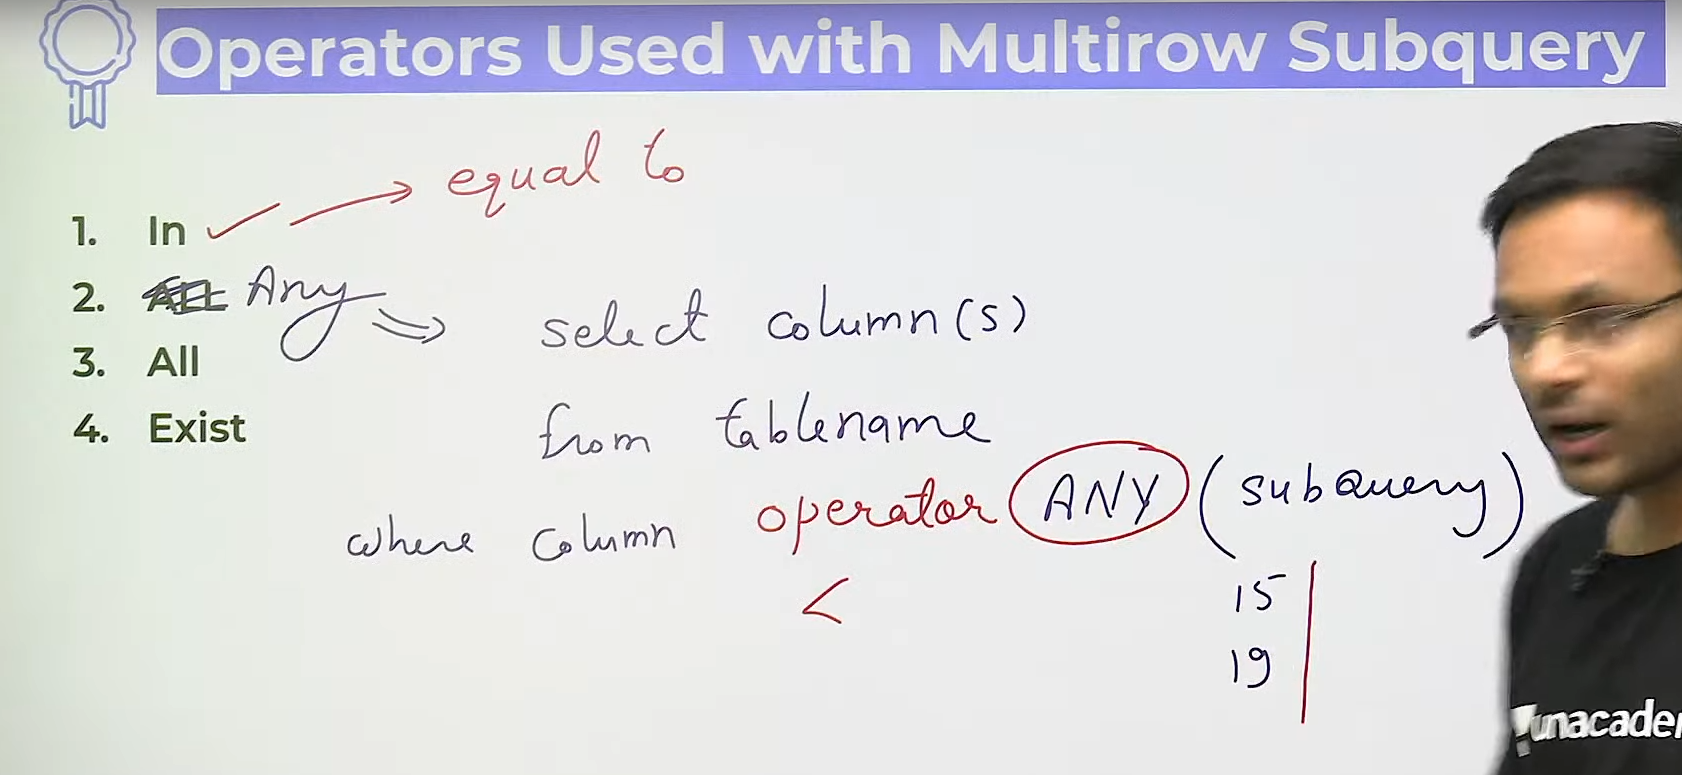 Operators Used with Multirow Subquery
equal to
1. In
2. ALL Any
select column(s)
3. All
from tablename
4. Exist
where column operator ANY (subQuery)
<
15
19
unacade